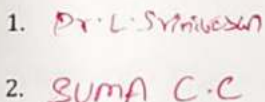 1. Dr. L. Srinivasan
2. SUMA C.C